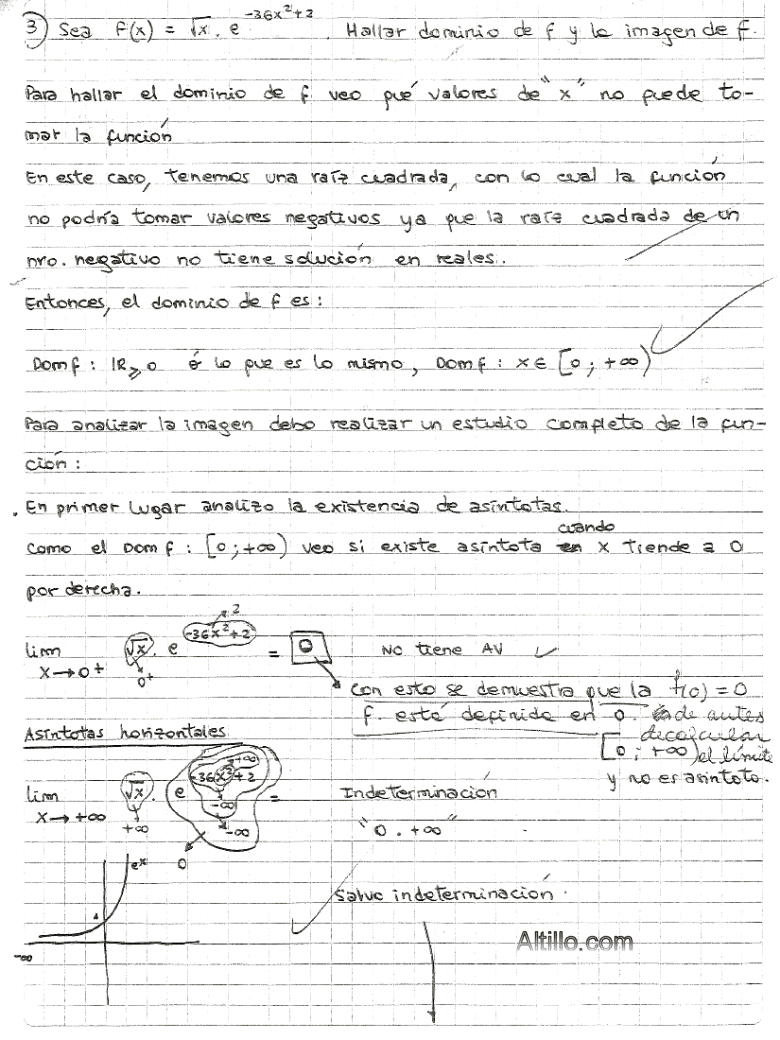 3) Sea f(x) = √x . e^(-36x²+2) . Hallar dominio de f y la imagen de f.
Para hallar el dominio de f veo qué valores de "x" no puede to-
mar la función
En este caso, tenemos una raíz cuadrada, con lo cual la función
no podría tomar valores negativos ya que la raíz cuadrada de un
nro. negativo no tiene solución en reales.
Entonces, el dominio de f es:
Dom f : ℝ≥0 ó lo que es lo mismo, Dom f : x ∈ [0 ; +∞)
Para analizar la imagen debo realizar un estudio completo de la fun-
ción :
. En primer lugar analizo la existencia de asíntotas.
Como el Dom f : [0 ; +∞) veo si existe asíntota cuando x tiende a 0
por derecha.
lim x→0⁺ √x . e^(-36x²+2) = 0 No tiene AV
0⁺
2
Con esto se demuestra que la f(0) = 0
f. está definida en 0. de antes
de calcular
[0 ; +∞) el límite
y no es asíntota.
Asíntotas horizontales
lim x→+∞ √x . e^(-36x²+2) = Indeterminación
+∞
+∞
-∞
-∞
0
"0 . +∞"
eˣ
Salvo indeterminación.
-∞
Altillo.com